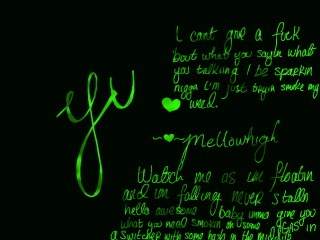 I cant give a fuck
bout what you sayin what
you talking I be sparkin
nigga I'm just tryin smoke my
weed.
~♥~ Mellowhigh
Watch me as im floatin
and im falling never stalln
hella awesome baby imma give you
what you need smokin on some
a Switcher with some hash in the